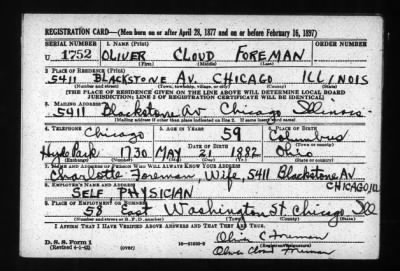 REGISTRATION CARD—(Men born on or after April 28, 1877 and on or before February 16, 1897)
SERIAL NUMBER 1. NAME (Print)
U 1752 OLIVER CLOUD FOREMAN
(First) (Middle) (Last)
2. PLACE OF RESIDENCE (Print)
5411 BLACKSTONE AV. CHICAGO ILLINOIS
(Number and street) (Town, township, village, or city) (County) (State)
[THE PLACE OF RESIDENCE GIVEN ON THE LINE ABOVE WILL DETERMINE LOCAL BOARD
JURISDICTION; LINE 2 OF REGISTRATION CERTIFICATE WILL BE IDENTICAL]
3. MAILING ADDRESS
5411 Blackstone Av Chicago Illinois
[Mailing address if other than place indicated on line 2. If same insert word same]
4. TELEPHONE 5. AGE IN YEARS 6. PLACE OF BIRTH
Chicago 59 Columbus
DATE OF BIRTH (Town or county)
Hyde Park 1730 MAY 21 1882 Ohio
(Exchange) (Number) (Mo.) (Day) (Yr.) (State or country)
7. NAME AND ADDRESS OF PERSON WHO WILL ALWAYS KNOW YOUR ADDRESS
Charlotte Foreman, Wife, 5411 Blackstone AV
8. EMPLOYER'S NAME AND ADDRESS CHICAGO ILL
SELF PHYSICIAN
9. PLACE OF EMPLOYMENT OR BUSINESS
58 East Washington St Chicago Ill
(Number and street or R. F. D. number) (Town) (County) (State)
I AFFIRM THAT I HAVE VERIFIED ABOVE ANSWERS AND THAT THEY ARE TRUE.
Oliver C Foreman
D. S. S. Form 1
(Revised 4-1-42) (over) (Registrant's signature)
Oliver Cloud Foreman